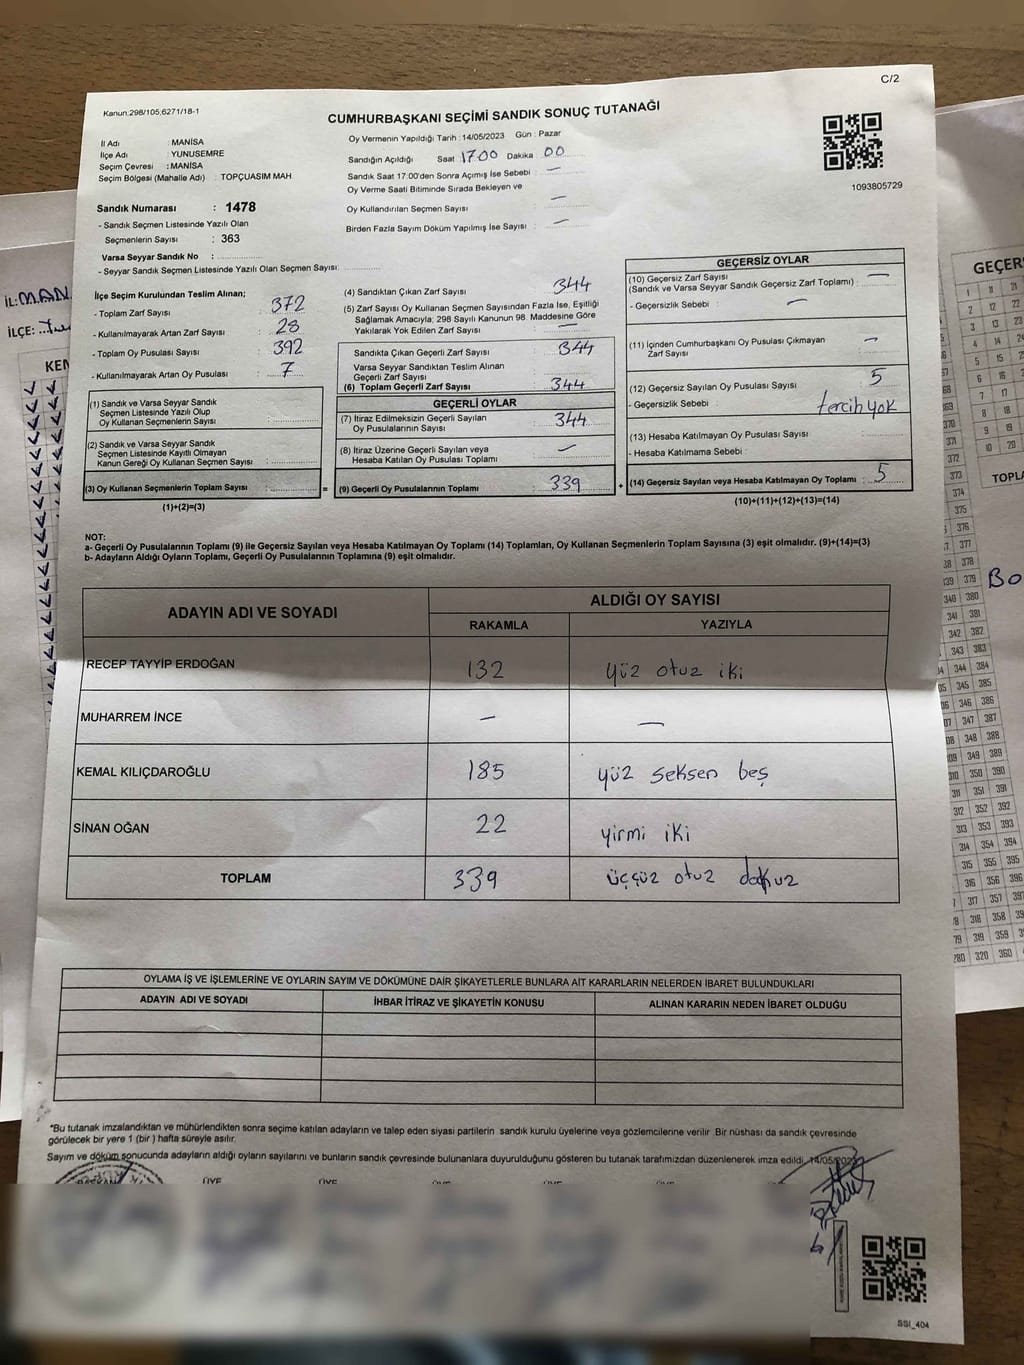 C/2
Kanun:298/105;6271/18-1
CUMHURBAŞKANI SEÇİMİ SANDIK SONUÇ TUTANAĞI
İl Adı : MANİSA
İlçe Adı : YUNUSEMRE
Seçim Çevresi : MANİSA
Seçim Bölgesi (Mahalle Adı) : TOPÇUASIM MAH
Sandık Numarası : 1478
- Sandık Seçmen Listesinde Yazılı Olan
Seçmenlerin Sayısı : 363
Varsa Seyyar Sandık No :
- Seyyar Sandık Seçmen Listesinde Yazılı Olan Seçmen Sayısı:
Oy Vermenin Yapıldığı Tarih : 14/05/2023 Gün : Pazar
Sandığın Açıldığı Saat 17:00 Dakika 00
Sandık Saat 17:00'den Sonra Açımış İse Sebebi : —
Oy Verme Saati Bitiminde Sırada Bekleyen ve
Oy Kullandırılan Seçmen Sayısı : —
Birden Fazla Sayım Döküm Yapılmış İse Sayısı : —
1093805729
İlçe Seçim Kurulundan Teslim Alınan;
- Toplam Zarf Sayısı : 372
- Kullanılmayarak Artan Zarf Sayısı : 28
- Toplam Oy Pusulası Sayısı : 392
- Kullanılmayarak Artan Oy Pusulası : 7
(1) Sandık ve Varsa Seyyar Sandık
Seçmen Listesinde Yazılı Olup
Oy Kullanan Seçmenlerin Sayısı :
(2) Sandık ve Varsa Seyyar Sandık
Seçmen Listesinde Kayıtlı Olmayan
Kanun Gereği Oy Kullanan Seçmen Sayısı :
(3) Oy Kullanan Seçmenlerin Toplam Sayısı : =
(1)+(2)=(3)
(4) Sandıktan Çıkan Zarf Sayısı : 344
(5) Zarf Sayısı Oy Kullanan Seçmen Sayısından Fazla İse, Eşitliği
Sağlamak Amacıyla; 298 Sayılı Kanunun 98. Maddesine Göre
Yakılarak Yok Edilen Zarf Sayısı : —
Sandıkta Çıkan Geçerli Zarf Sayısı : 344
Varsa Seyyar Sandıktan Teslim Alınan
Geçerli Zarf Sayısı :
(6) Toplam Geçerli Zarf Sayısı : 344
GEÇERLİ OYLAR
(7) İtiraz Edilmeksizin Geçerli Sayılan
Oy Pusulalarının Sayısı : 344
(8) İtiraz Üzerine Geçerli Sayılan veya
Hesaba Katılan Oy Pusulası Toplamı : —
(9) Geçerli Oy Pusulalarının Toplamı : 339 +
GEÇERSİZ OYLAR
(10) Geçersiz Zarf Sayısı
(Sandık ve Varsa Seyyar Sandık Geçersiz Zarf Toplamı) : —
- Geçersizlik Sebebi : —
(11) İçinden Cumhurbaşkanı Oy Pusulası Çıkmayan
Zarf Sayısı : —
(12) Geçersiz Sayılan Oy Pusulası Sayısı : 5
- Geçersizlik Sebebi : tercih yok
(13) Hesaba Katılmayan Oy Pusulası Sayısı :
- Hesaba Katılmama Sebebi :
(14) Geçersiz Sayılan veya Hesaba Katılmayan Oy Toplamı : 5
(10)+(11)+(12)+(13)=(14)
NOT:
a- Geçerli Oy Pusulalarının Toplamı (9) ile Geçersiz Sayılan veya Hesaba Katılmayan Oy Toplamı (14) Toplamları, Oy Kullanan Seçmenlerin Toplam Sayısına (3) eşit olmalıdır. (9)+(14)=(3)
b- Adayların Aldığı Oyların Toplamı, Geçerli Oy Pusulalarının Toplamına (9) eşit olmalıdır.
ADAYIN ADI VE SOYADI ALDIĞI OY SAYISI
RAKAMLA YAZIYLA
RECEP TAYYİP ERDOĞAN 132 yüz otuz iki
MUHARREM İNCE — —
KEMAL KILIÇDAROĞLU 185 yüz seksen beş
SİNAN OĞAN 22 yirmi iki
TOPLAM 339 üççüz otuz dokuz
OYLAMA İŞ VE İŞLEMLERİNE VE OYLARIN SAYIM VE DÖKÜMÜNE DAİR ŞİKAYETLERLE BUNLARA AİT KARARLARIN NELERDEN İBARET BULUNDUKLARI
ADAYIN ADI VE SOYADI İHBAR İTİRAZ VE ŞİKAYETİN KONUSU ALINAN KARARIN NEDEN İBARET OLDUĞU
*Bu tutanak imzalandıktan ve mühürlendikten sonra seçime katılan adayların ve talep eden siyasi partilerin sandık kurulu üyelerine veya gözlemcilerine verilir. Bir nüshası da sandık çevresinde
görülecek bir yere 1 (bir) hafta süreyle asılır.
Sayım ve döküm sonucunda adayların aldığı oyların sayılarını ve bunların sandık çevresinde bulunanlara duyurulduğunu gösteren bu tutanak tarafımızdan düzenlenerek imza edildi. 14/05/2023
ÜYE ÜYE
SSI_404
İL: MAN
İLÇE:
KEN
GEÇER
TOPL
Bo